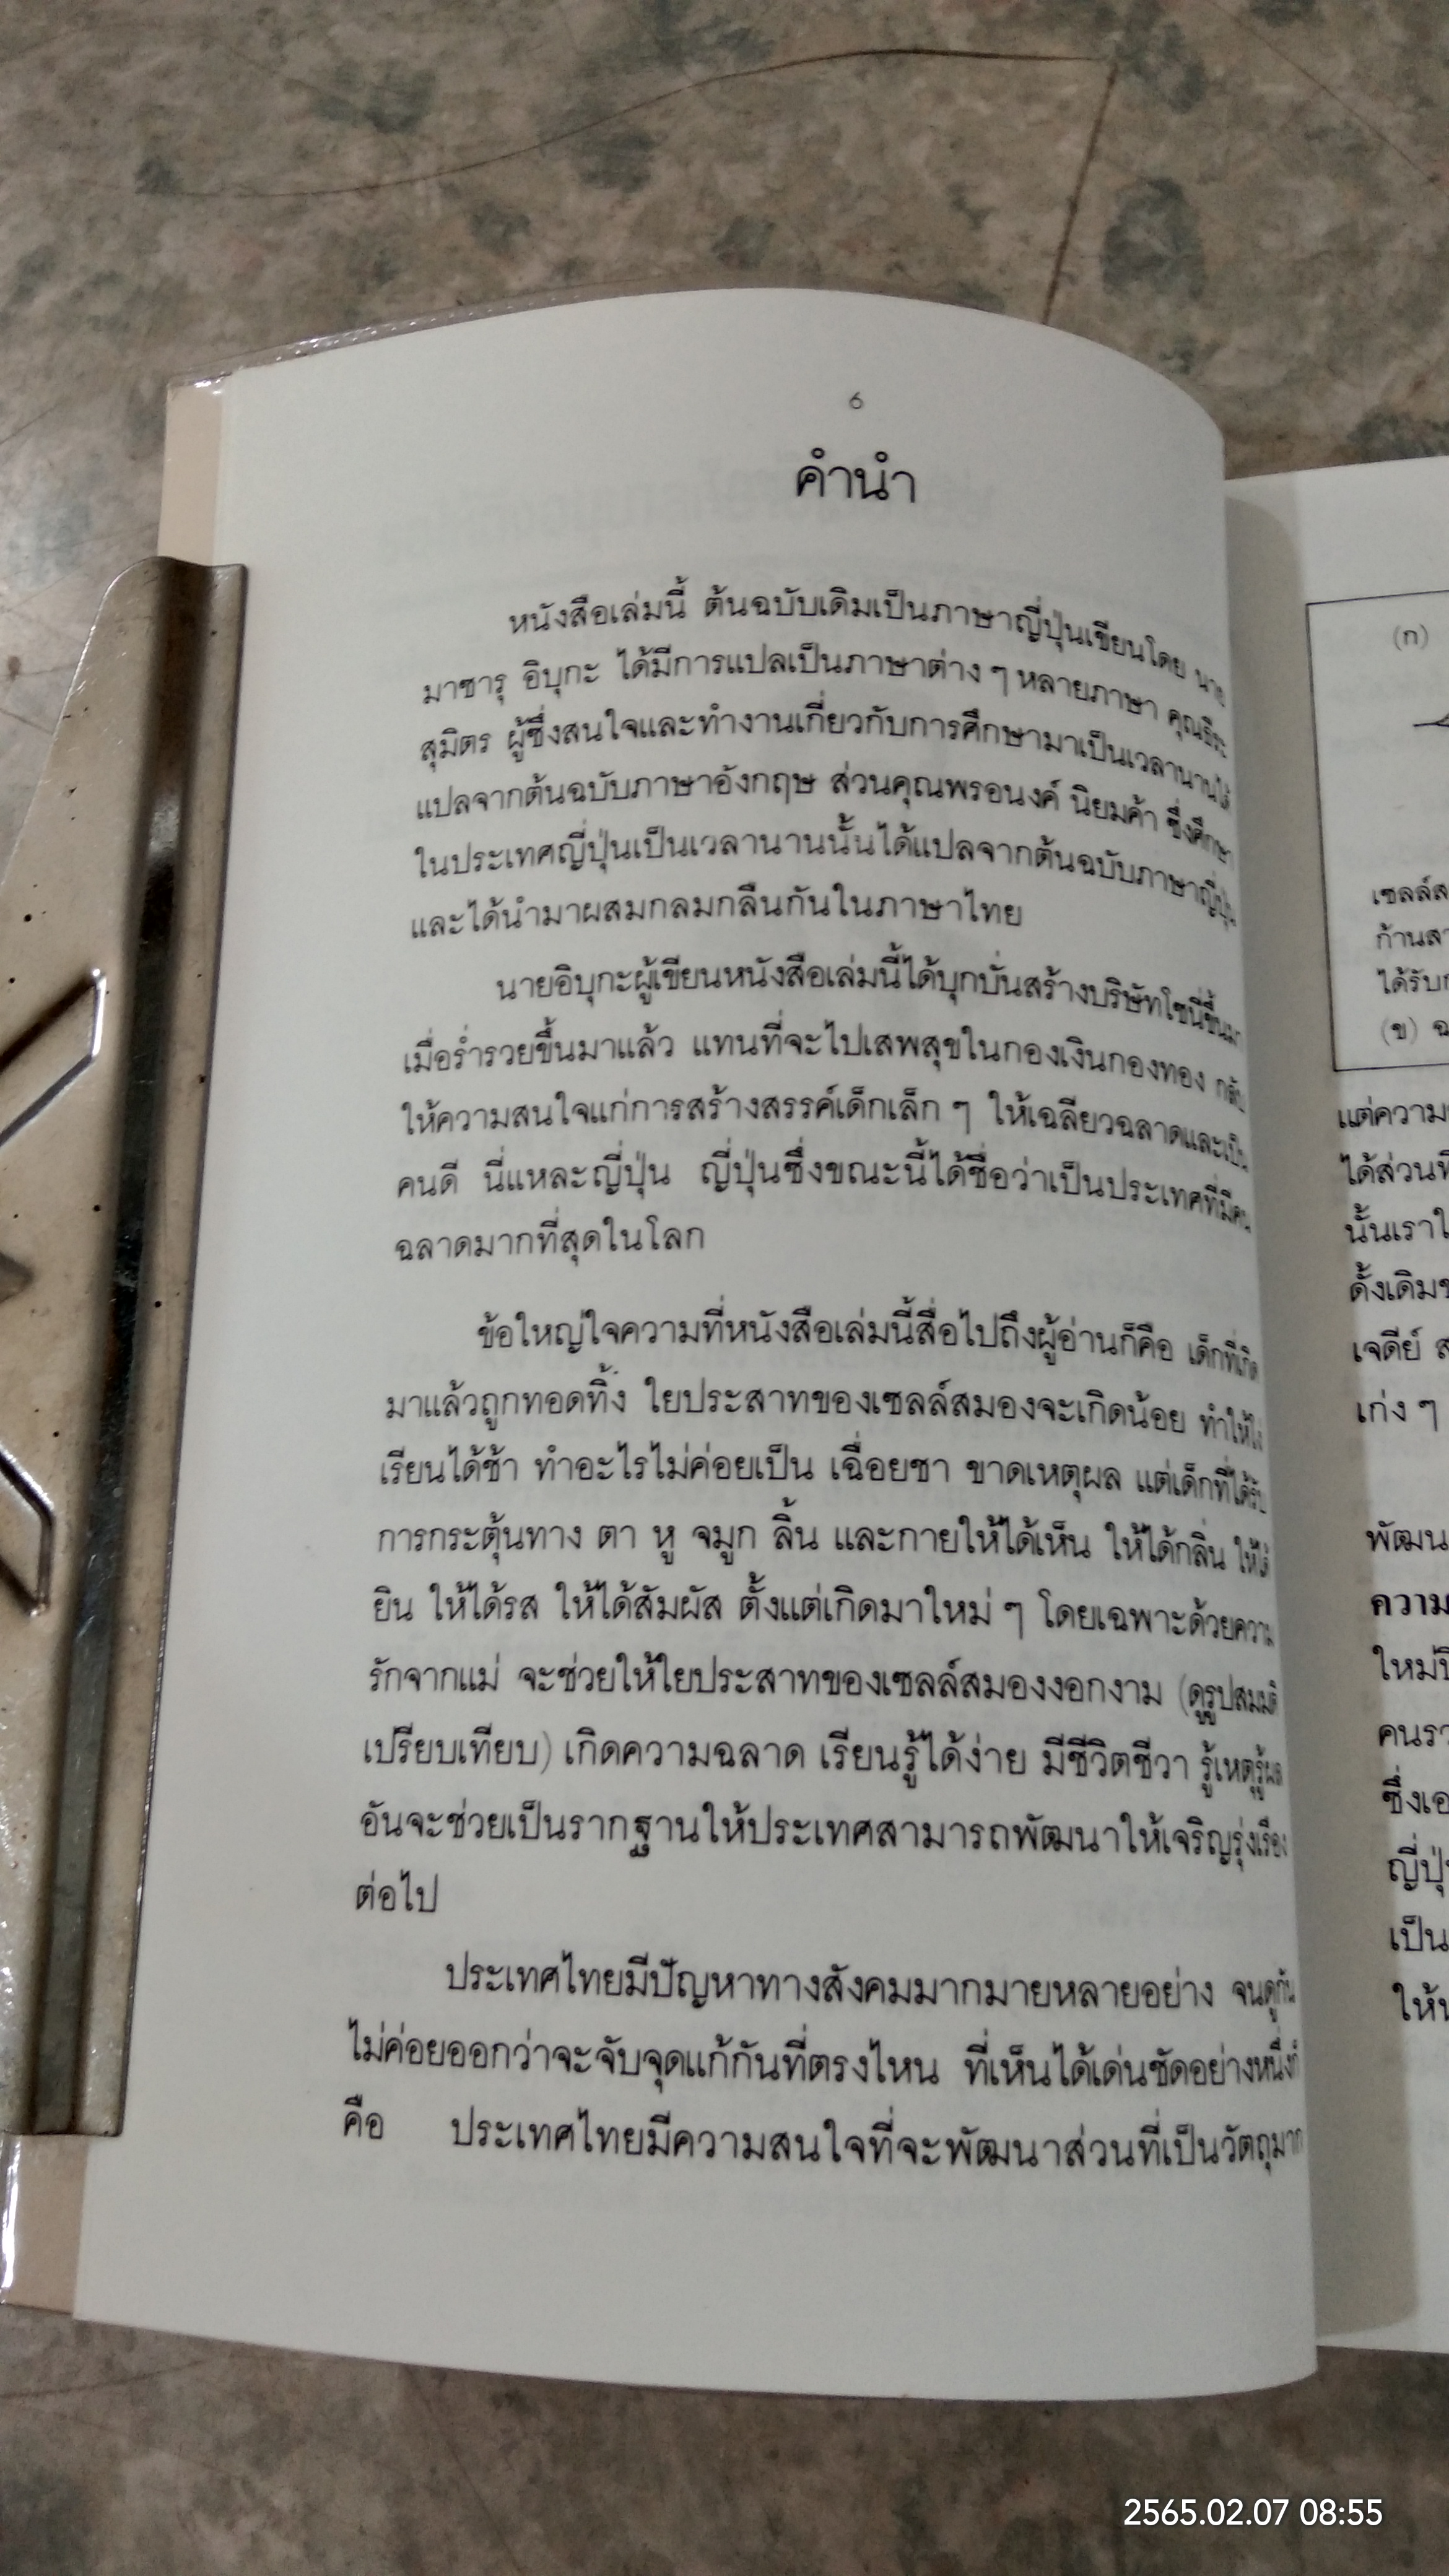 6
คำนำ
หนังสือเล่มนี้ ต้นฉบับเดิมเป็นภาษาญี่ปุ่นเขียนโดย นาย
มาซารุ อิบุกะ ได้มีการแปลเป็นภาษาต่าง ๆ หลายภาษา คุณธีระ
สุมิตร ผู้ซึ่งสนใจและทำงานเกี่ยวกับการศึกษามาเป็นเวลานานได้
แปลจากต้นฉบับภาษาอังกฤษ ส่วนคุณพรอนงค์ นิยมค้า ซึ่งศึกษา
ในประเทศญี่ปุ่นเป็นเวลานานนั้นได้แปลจากต้นฉบับภาษาญี่ปุ่น
และได้นำมาผสมกลมกลืนกันในภาษาไทย
นายอิบุกะผู้เขียนหนังสือเล่มนี้ได้บุกบั่นสร้างบริษัทโซนี่ขึ้นมา
เมื่อร่ำรวยขึ้นมาแล้ว แทนที่จะไปเสพสุขในกองเงินกองทอง กลับ
ให้ความสนใจแก่การสร้างสรรค์เด็กเล็ก ๆ ให้เฉลียวฉลาดและเป็น
คนดี นี่แหละญี่ปุ่น ญี่ปุ่นซึ่งขณะนี้ได้ชื่อว่าเป็นประเทศที่มีคน
ฉลาดมากที่สุดในโลก
ข้อใหญ่ใจความที่หนังสือเล่มนี้สื่อไปถึงผู้อ่านก็คือ เด็กที่เกิด
มาแล้วถูกทอดทิ้ง ใยประสาทของเซลล์สมองจะเกิดน้อย ทำให้
เรียนได้ช้า ทำอะไรไม่ค่อยเป็น เฉื่อยชา ขาดเหตุผล แต่เด็กที่ได้รับ
การกระตุ้นทาง ตา หู จมูก ลิ้น และกายให้ได้เห็น ให้ได้กลิ่น ให้ได้
ยิน ให้ได้รส ให้ได้สัมผัส ตั้งแต่เกิดมาใหม่ ๆ โดยเฉพาะด้วยความ
รักจากแม่ จะช่วยให้ใยประสาทของเซลล์สมองงอกงาม (ดูรูปสมมติ
เปรียบเทียบ) เกิดความฉลาด เรียนรู้ได้ง่าย มีชีวิตชีวา รู้เหตุรู้ผล
อันจะช่วยเป็นรากฐานให้ประเทศสามารถพัฒนาให้เจริญรุ่งเรือง
ต่อไป
ประเทศไทยมีปัญหาทางสังคมมากมายหลายอย่าง จนดูกัน
ไม่ค่อยออกว่าจะจับจุดแก้กันที่ตรงไหน ที่เห็นได้เด่นชัดอย่างหนึ่งก็
คือ ประเทศไทยมีความสนใจที่จะพัฒนาส่วนที่เป็นวัตถุมาก
(ก)
ก้านสา
(ข)
แต่ความ
ได้ส่วน
นั้นเรา
ดั้งเดิม
เจดีย์
เก่ง ๆ
พัฒน
ความ
คนรว
ซึ่งเอ
เป็น
2565.02.07 08:55